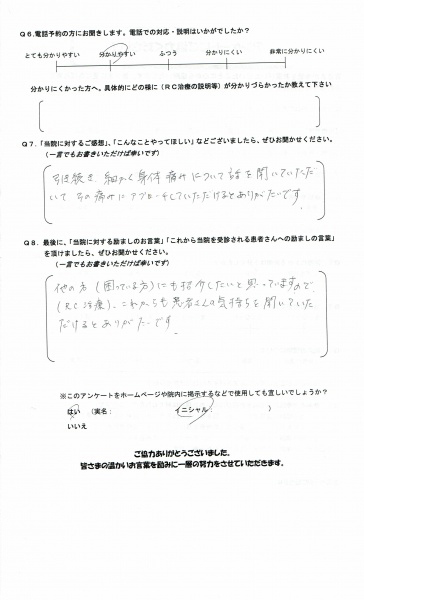 Q6.電話予約の方にお聞きします。電話での対応・説明はいかがでしたか?
とても分かりやすい 分かりやすい ふつう 分かりにくい 非常に分かりにくい
分かりにくかった方へ。具体的にどの様に(RC治療の説明等)が分かりづらかったか教えて下さい
Q7.「当院に対するご感想」、「こんなことやってほしい」などございましたら、ぜひお聞かせください。
(一言でもお書きいただけば幸いです)
引き続き 細かく身体 痛みについて話を聞いていただ
いて その痛みにアプローチしていただけるとありがたいです.
Q8.最後に、「当院に対する励ましのお言葉」「これから当院を受診される患者さんへの励ましの言葉」
を頂けましたら、ぜひお聞かせください。
(一言でもお書きいただけば幸いです)
他の方(困っている方)にも紹介したいと思っていますので.
(RC治療)、これからも患者さんの気持ちを聞いていた
だけるとありがたいです.
※このアンケートをホームページや院内に掲示するなどで使用しても宜しいでしょうか?
はい (実名: イニシャル: )
いいえ
ご協力ありがとうございました。
皆さまの温かいお言葉を励みに一層の努力をさせていただきます。